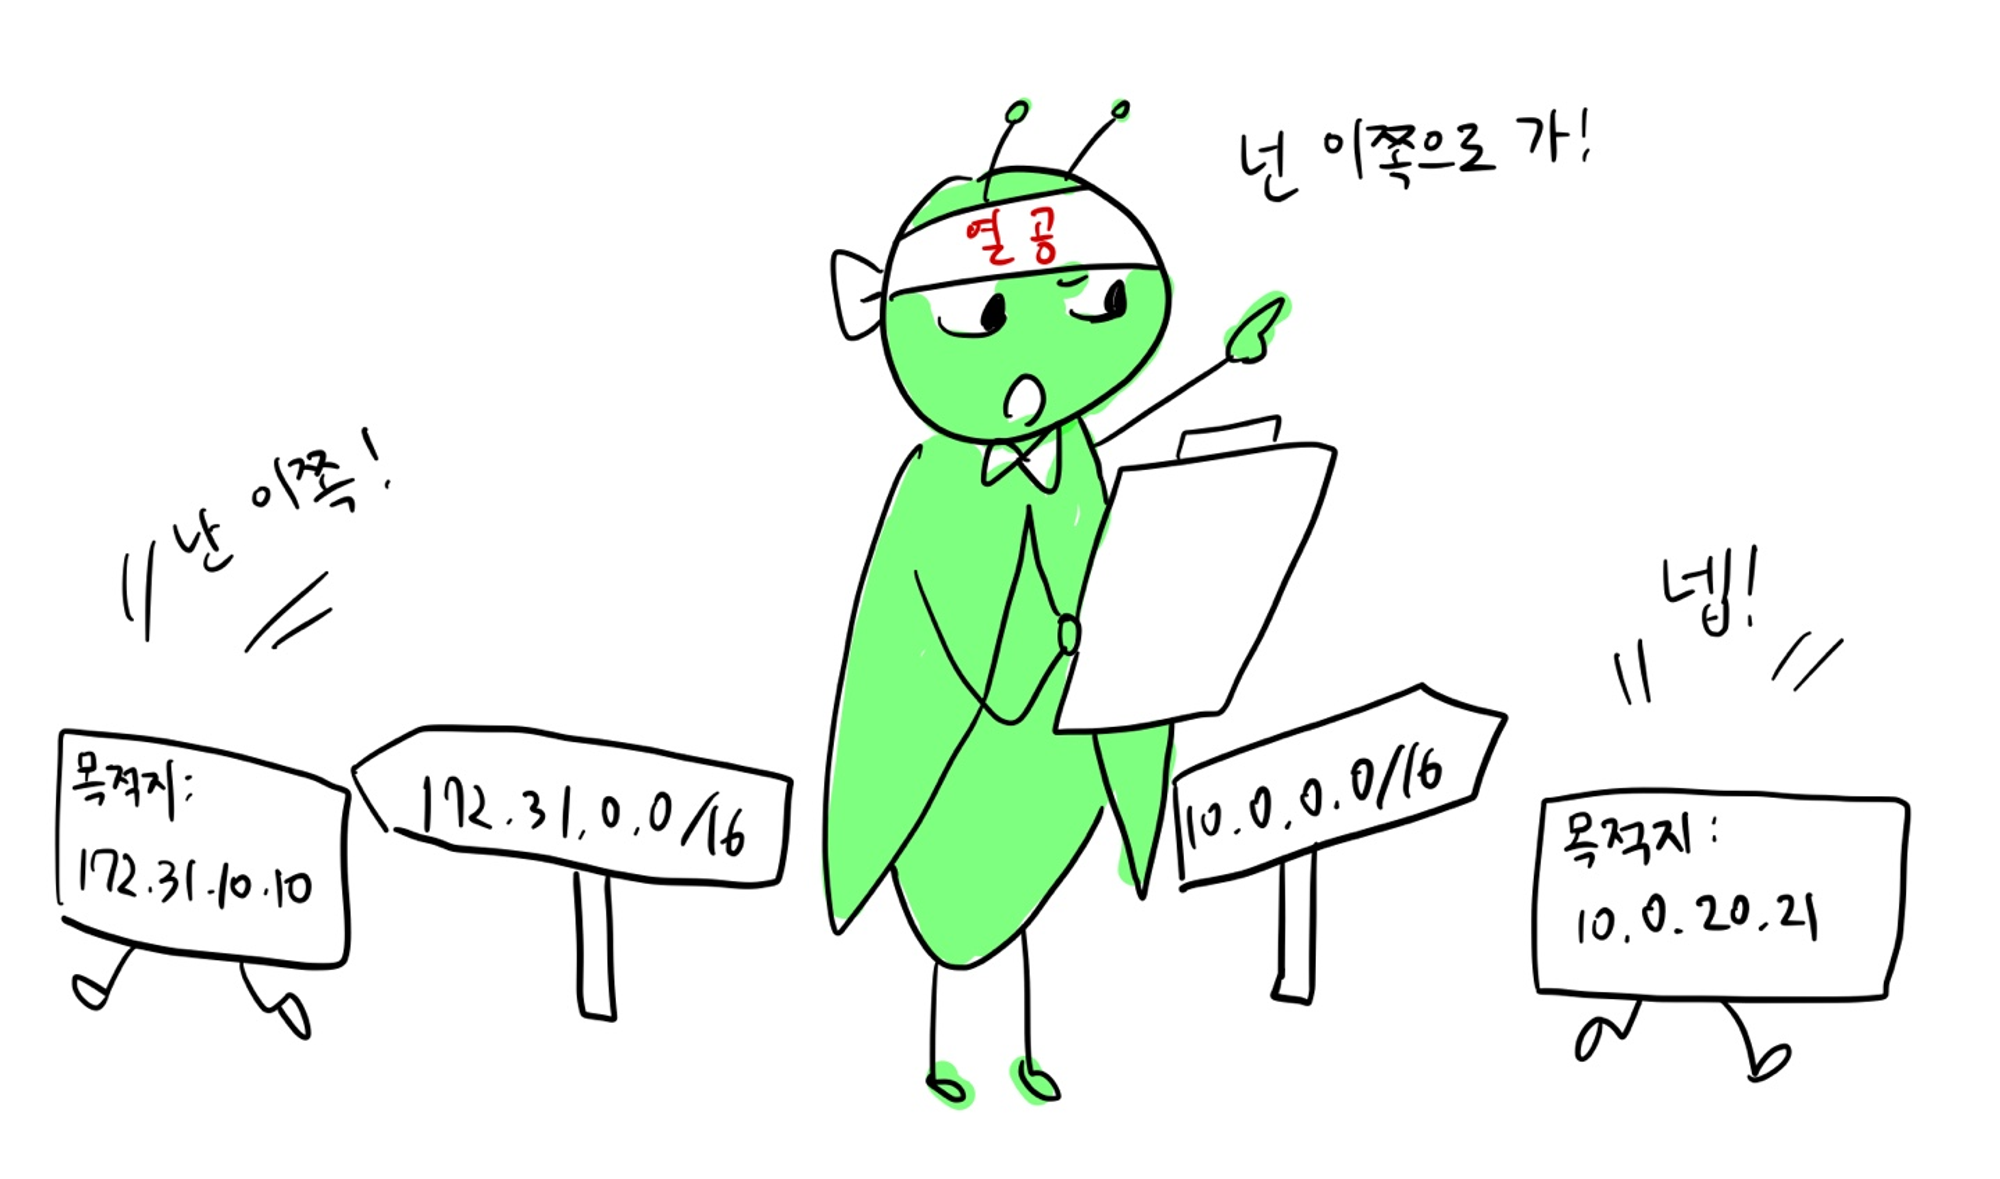 넌 이쪽으로 가!
열공
난 이쪽!
넵!
목적지:
172.31.10.10
172.31.0.0/16
10.0.0.0/16
목적지:
10.0.20.21